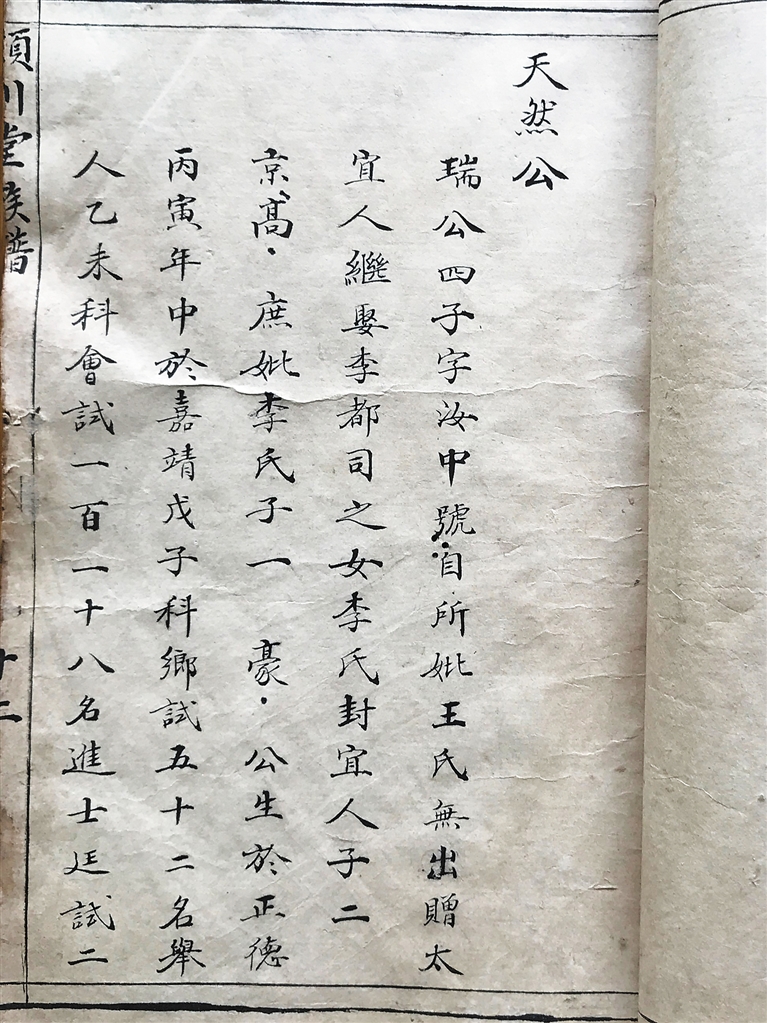 天然公
瑞公四子字汝中號自所妣王氏無出贈太
宜人繼娶李都司之女李氏封宜人子二
京高庶妣李氏子一 豪公生於正德
丙寅年中於嘉靖戊子科鄉試五十二名舉
人乙未科會試一百一十八名進士廷試二
川堂族譜
十二